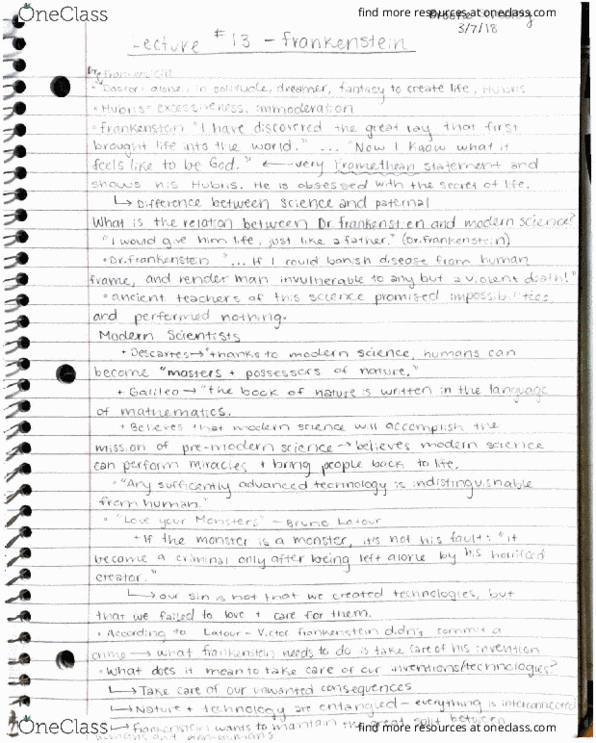 OneClass
find more resources at oneclass.com
3/7/18
Lecture #13 - Frankenstein
Dr Frankenstein
• Doctor alone, in solitude, dreamer, fantasy to create life, Hubris
• Hubris = excessiveness, immoderation
• Frankenstein "I have discovered the great ray that first
brought life into the world." ... "Now I know what it
feels like to be God." ← very Promethean statement and
shows his Hubris. He is obsessed with the secret of life.
↳ Difference between science and paternal
What is the relation between Dr. Frankenstien and modern science?
"I would give him life, just like a father." (Dr. Frankenstein)
• Dr. Frankenstein "... If I could banish disease from human
frame, and render man invulnerable to any but a violent death!"
• ancient teachers of this science promised impossibilities
and performed nothing.
Modern Scientists
+ Descartes → "thanks to modern science, humans can
become "masters + possessors of nature."
+ Galileo → "the book of nature is written in the language
of mathematics.
+ Believes that modern science will accomplish the
mission of pre-modern science → believes modern science
can perform miracles + bring people back to life.
• "Any sufficently advanced technology is indistinguishable
from human."
• "Love your Monsters" - Bruno Latour
+ If the monster is a monster, it's not his fault: "it
became a criminal only after being left alone by his horrified
creator."
↳ our sin is not that we created technologies, but
that we failed to love + care for them.
• According to Latour - Victor Frankenstein didn't commit a
crime → what Frankenstein needs to do is take care of his invention
• What does it mean to take care of our inventions/technologies?
↳ Take care of our unwanted consequences
↳ Nature + technology are entangled - everything is interconnected
↳ Frankenstein wants to maintain the great split between
humans and non-humans
OneClass
find more resources at oneclass.com